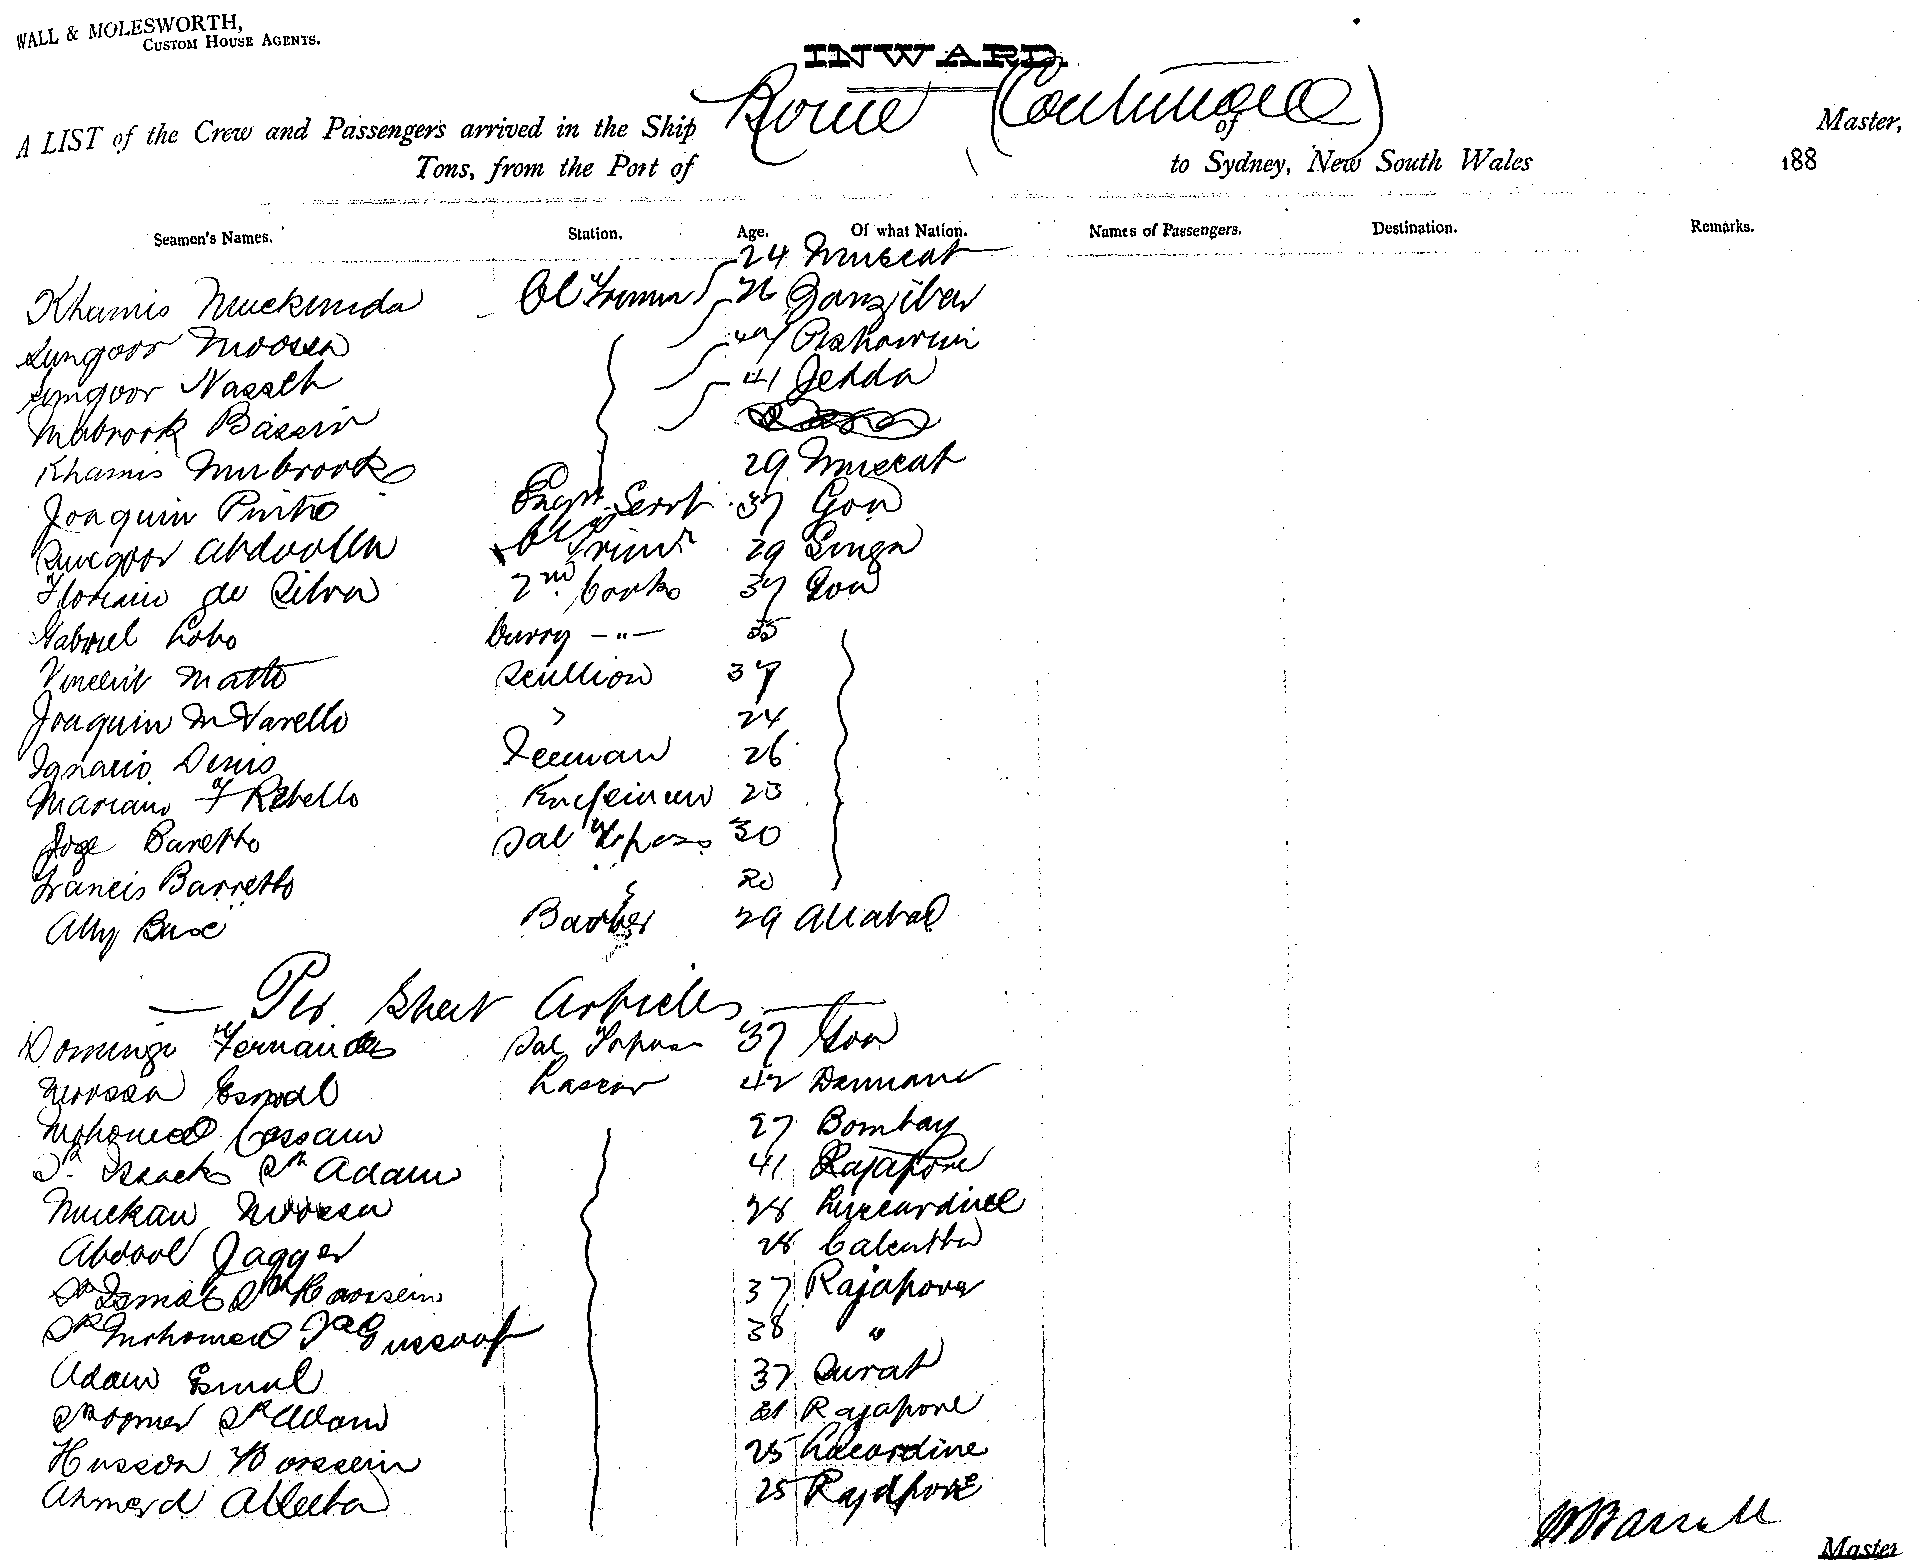 WALL & MOLESWORTH,
CUSTOM HOUSE AGENTS.
INWARD.
A LIST of the Crew and Passengers arrived in the Ship Rome (Continued) of Master,
Tons, from the Port of to Sydney, New South Wales 188
Seamen's Names. Station. Age. Of what Nation. Names of Passengers. Destination. Remarks.
24 Muscat
Khamis Muckinda Cl Trimmr 26 Zanzibar
Sungoor Moosa 47
Sungoor Nasseb 41 Jedda
Mabrook Bassin
Khamis Mubrook 29 Muscat
Joaquin Pinto Engrs Servt 37 Goa
Sungoor Abdoolla Cl Trimr 29 Linga
Floriano de Silva 2nd Cooks 37 Goa
Gabriel Lobo Curry -"- 35
Vincent Matto Scullion 37
Joaquin M Varello " 24
Ignacio Dinis 26
Mariano F Rebello 23
Jose Baretto Sal Topass 30
Francis Barretto " 20
Ally Bux Barber 29 Allabad
— Per Sheet Articles —
Domingo Fernandes Sal Topass 37 Goa
Moossa Esmal Lascar 42 Dammam
Mohomed Cassam 27 Bombay
Sk Isaacks Sk Adam 41 Rajapore
Muckan Moosa 28
Abdool Jagger 28 Calcutta
Sk Ismal Sk Hoossein 37 Rajapore
Sk Mohomed Sk Gussoof 38 "
Adam Esmal 37 Surat
Sk Oomer Sk Adam 31 Rajapore
Husson Hoossein 25 Lacardine
Ahmed Alleeba 25 Rajapore
Master